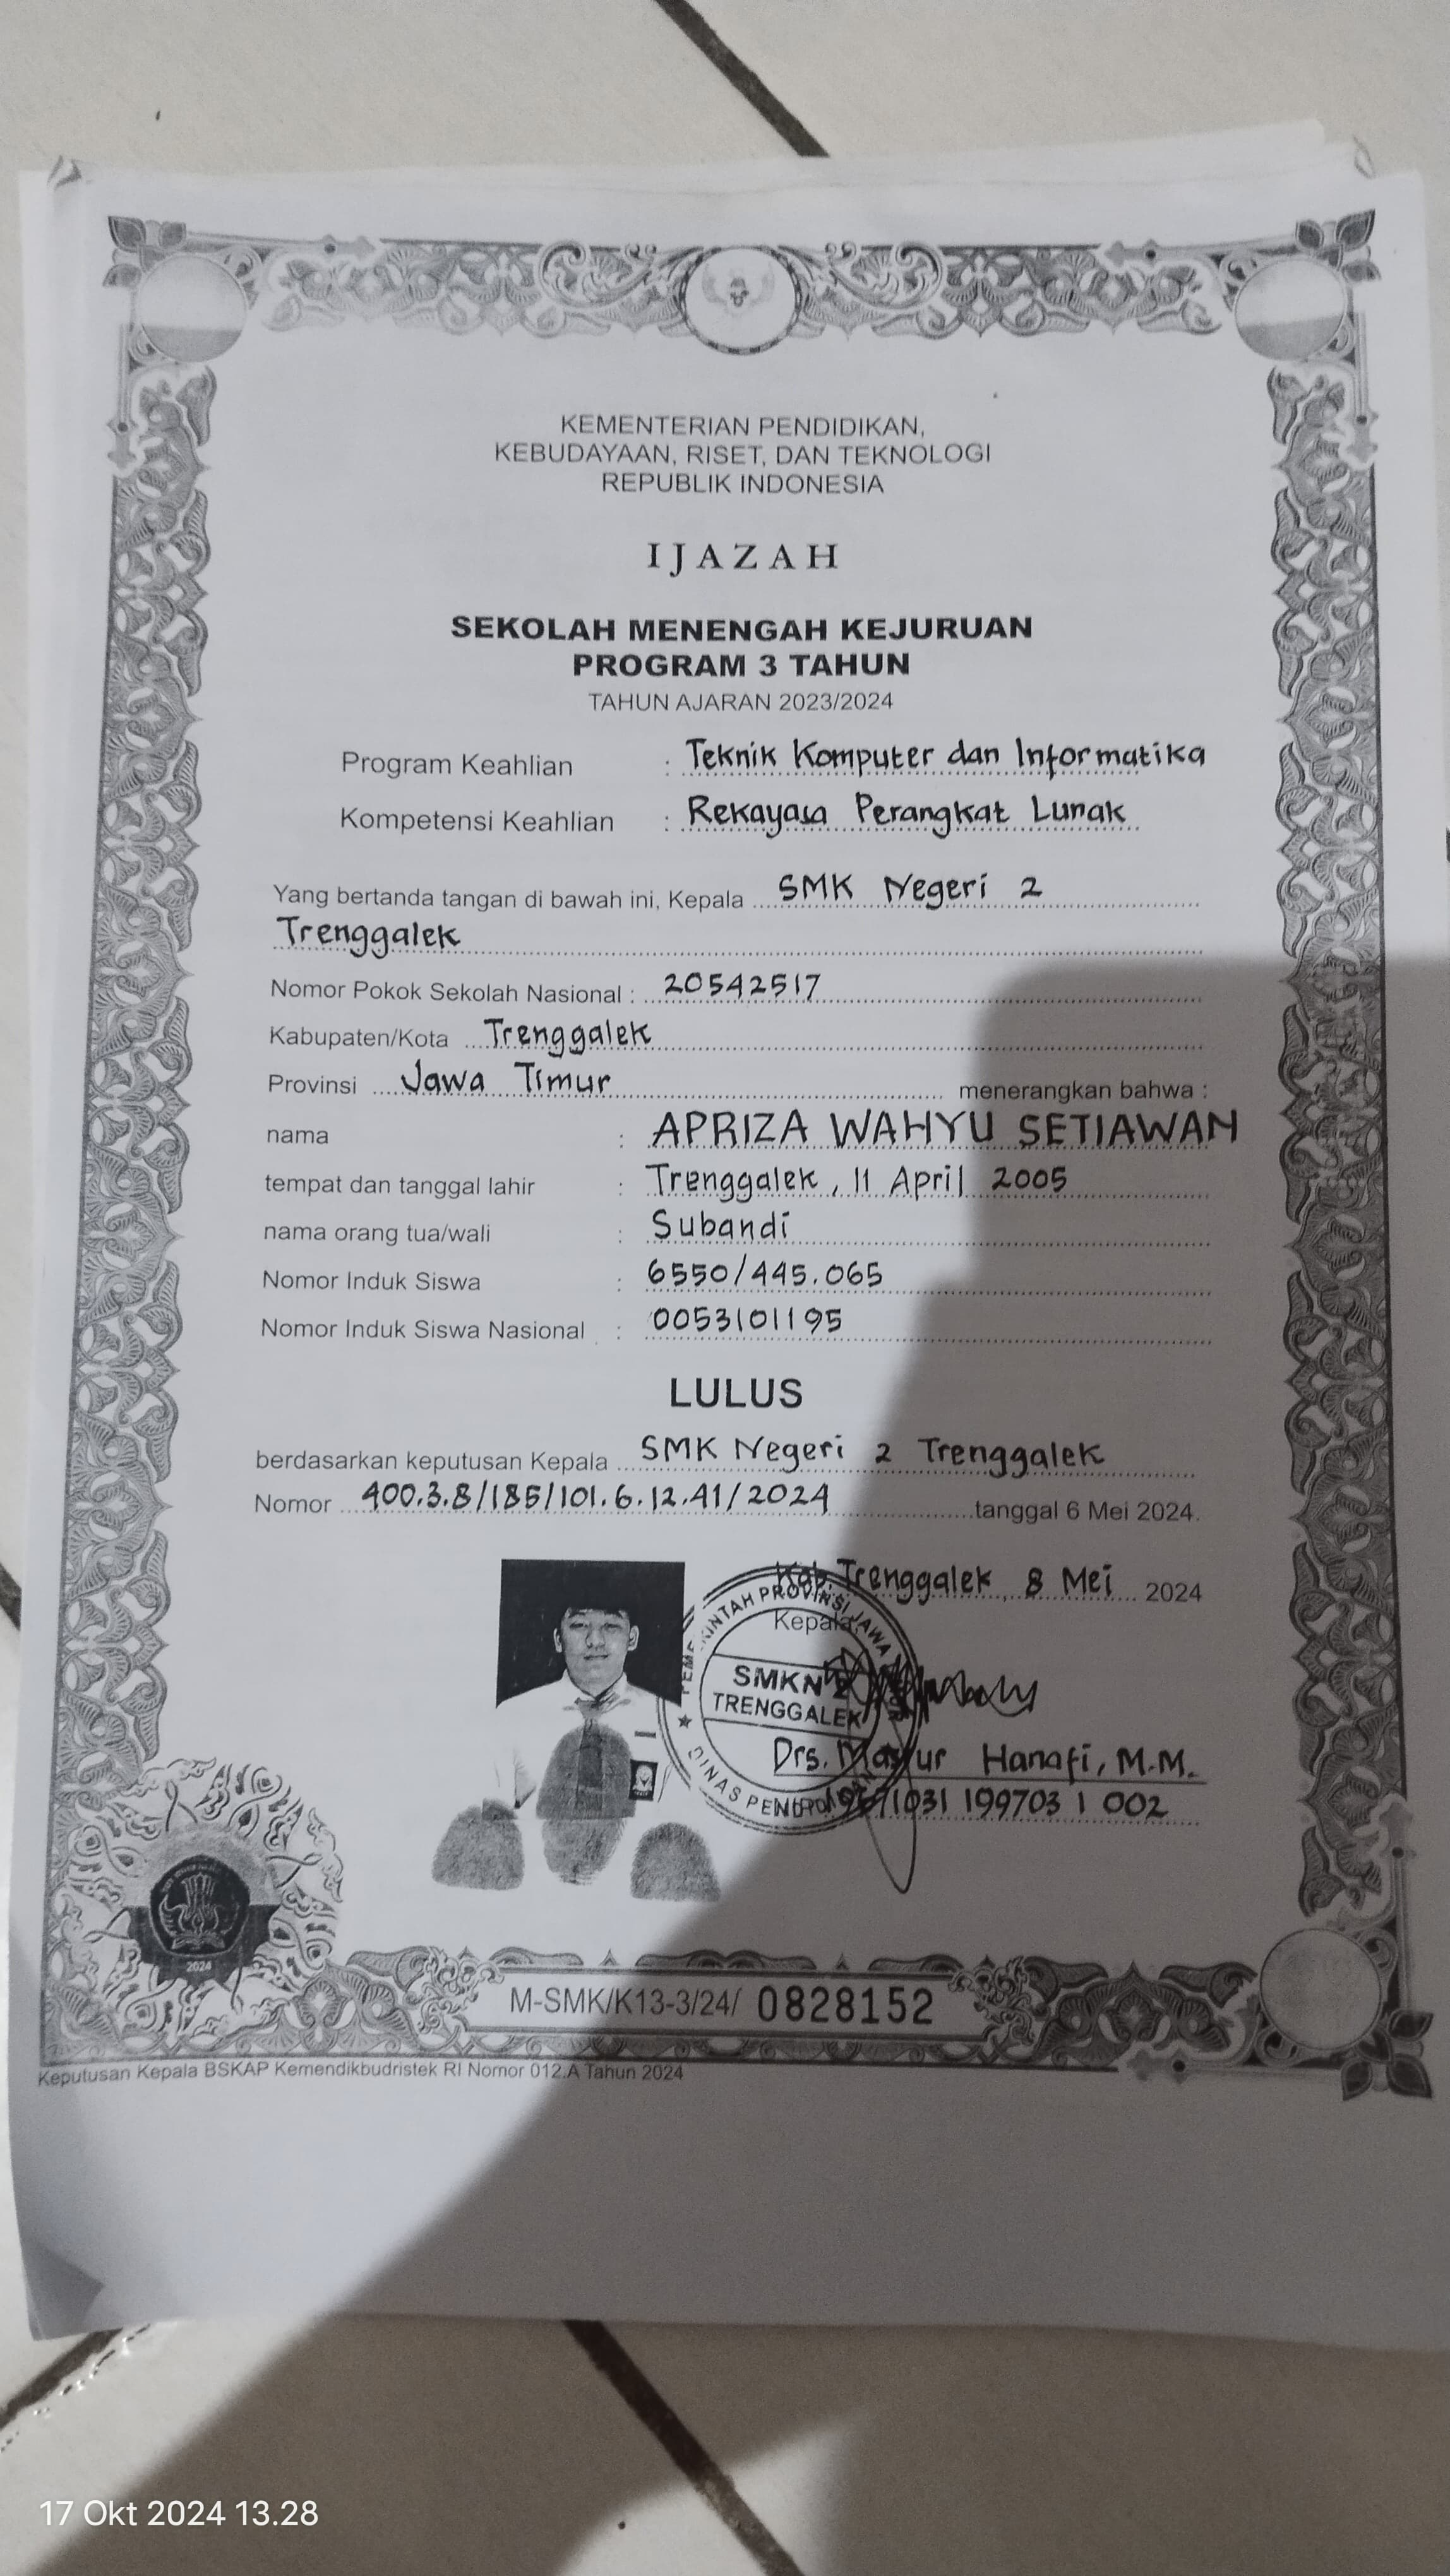 KEMENTERIAN PENDIDIKAN,
KEBUDAYAAN, RISET, DAN TEKNOLOGI
REPUBLIK INDONESIA
IJAZAH
SEKOLAH MENENGAH KEJURUAN
PROGRAM 3 TAHUN
TAHUN AJARAN 2023/2024
Program Keahlian : Teknik Komputer dan Informatika
Kompetensi Keahlian : Rekayasa Perangkat Lunak
Yang bertanda tangan di bawah ini, Kepala SMK Negeri 2
Trenggalek
Nomor Pokok Sekolah Nasional : 20542517
Kabupaten/Kota Trenggalek
Provinsi Jawa Timur menerangkan bahwa :
nama : APRIZA WAHYU SETIAWAN
tempat dan tanggal lahir : Trenggalek, 11 April 2005
nama orang tua/wali : Subandi
Nomor Induk Siswa : 6550/445.065
Nomor Induk Siswa Nasional : 0053101195
LULUS
berdasarkan keputusan Kepala SMK Negeri 2 Trenggalek
Nomor 400.3.8/185/101.6.12.41/2024 tanggal 6 Mei 2024.
Kab. Trenggalek, 8 Mei 2024
Kepala,
PEMERINTAH PROVINSI JAWA
SMKN 2
TRENGGALEK
DINAS PENDIDIKAN
Drs. Masrur Hanafi, M.M.
1031 199703 1 002
2024
M-SMK/K13-3/24/ 0828152
Keputusan Kepala BSKAP Kemendikbudristek RI Nomor 012.A Tahun 2024
17 Okt 2024 13.28